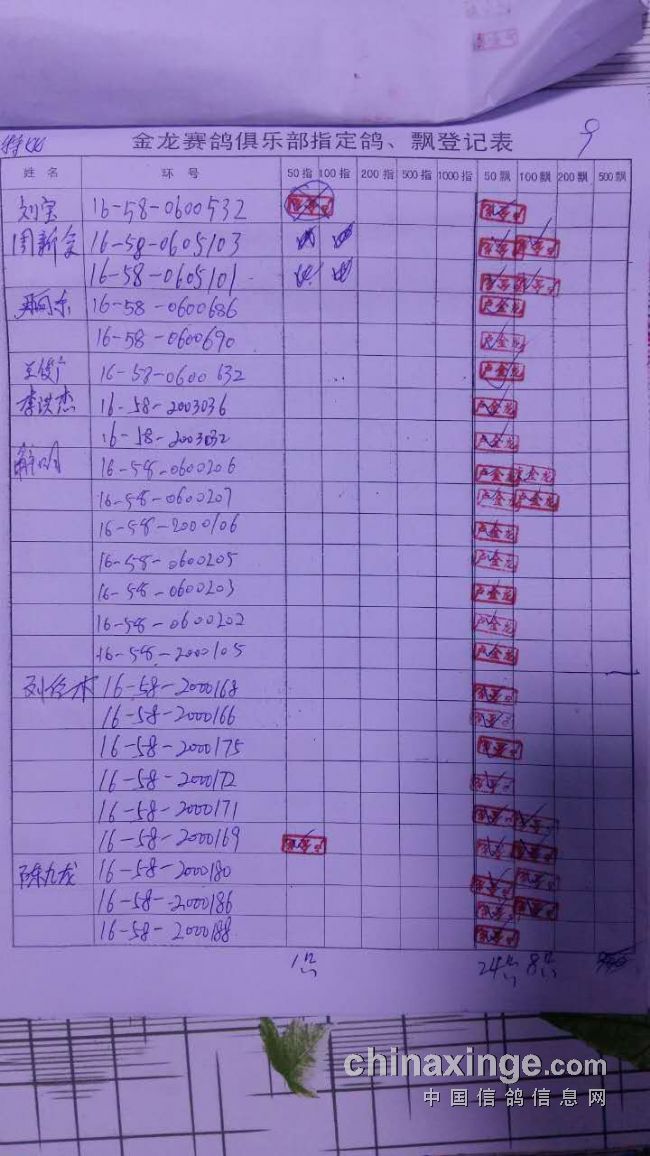 金龙赛鸽俱乐部指定鸽、飘登记表 9
姓名 环号 50指 100指 200指 500指 1000指 50飘 100飘 200飘 500飘
16-58-0600532
周新 16-58-0605103
16-58-0605101
16-58-0600686 卢金龙
16-58-0600690 卢金龙
16-58-0600632 卢金龙
李洪杰 16-58-2003036 卢金龙
16-58-2003032 卢金龙
16-58-0600206 卢金龙 卢金龙
16-58-0600207 卢金龙 卢金龙
16-58-2000106 卢金龙
16-58-0600205 卢金龙
16-58-0600203 卢金龙
16-58-0600202 卢金龙
16-58-2000105 卢金龙
16-58-2000168
16-58-2000166
16-58-2000175
16-58-2000172
16-58-2000171
16-58-2000169
陈九龙 16-58-2000180
16-58-2000186
16-58-2000188
1 24 8
chinaxinge.com
中国信鸽信息网